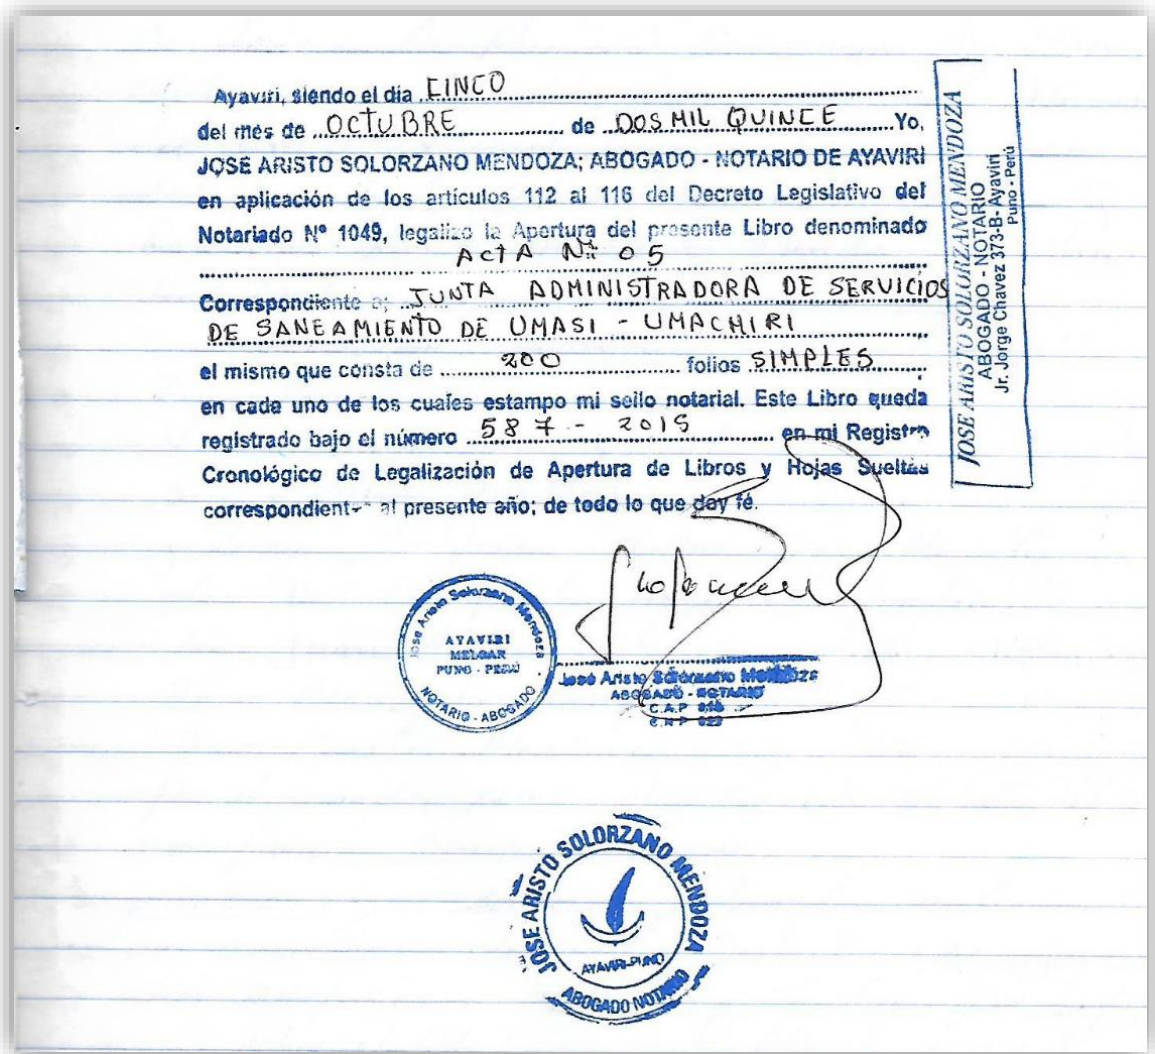 Ayaviri, siendo el día CINCO
del mes de OCTUBRE de DOS MIL QUINCE Yo,
JOSE ARISTO SOLORZANO MENDOZA; ABOGADO - NOTARIO DE AYAVIRI
en aplicación de los artículos 112 al 116 del Decreto Legislativo del
Notariado Nº 1049, legalizo la Apertura del presente Libro denominado
ACTA Nº 05
Correspondiente a; JUNTA ADMINISTRADORA DE SERVICIOS
DE SANEAMIENTO DE UMASI - UMACHIRI
el mismo que consta de 200 folios SIMPLES
en cada uno de los cuales estampo mi sello notarial. Este Libro queda
registrado bajo el número 587 - 2015 en mi Registro
Cronológico de Legalización de Apertura de Libros y Hojas Sueltas
correspondiente al presente año; de todo lo que doy fé.
JOSE ARISTO SOLORZANO MENDOZA
ABOGADO - NOTARIO
Jr. Jorge Chavez 373-B- Ayaviri
Puno - Perú
Jose Aristo Solorzano Mendoza
AYAVIRI
MELGAR
PUNO - PERÚ
NOTARIO - ABOGADO
José Aristo Solorzano Mendoza
ABOGADO - NOTARIO
C.A.P
C.N.P 023
JOSE ARISTO SOLORZANO MENDOZA
AYAVIRI-PUNO
ABOGADO NOTARIO